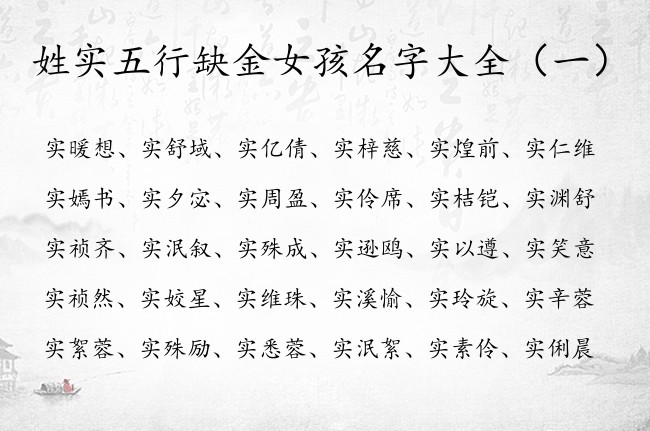 姓实五行缺金女孩名字大全（一）
实暖想、实舒域、实亿倩、实梓慈、实煌前、实仁维
实嫣书、实夕宓、实周盈、实伶席、实桔铠、实渊舒
实祯齐、实泯叙、实殊成、实逊鸥、实以遵、实笑意
实祯然、实姣星、实维珠、实溪愉、实玲旋、实辛蓉
实絮蓉、实殊励、实悉蓉、实泯絮、实素伶、实俐晨